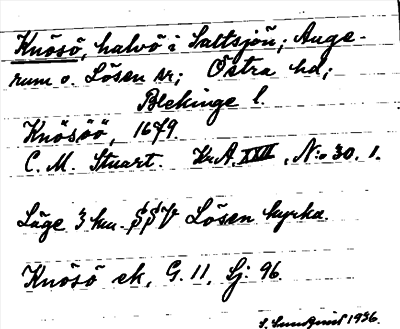 Knösö, halvö i Saltsjön; Auge-
rum o. Lösen sr; Östra hd;
Blekinge l.
Knösöö, 1679.
C. M. Stuart. Kr.A. XXII, N:o 30. 1.
Läge 3 km. SSV Lösen kyrka.
Knösö ek, G. 11, Lj. 96.
S. Lundquist 1936.